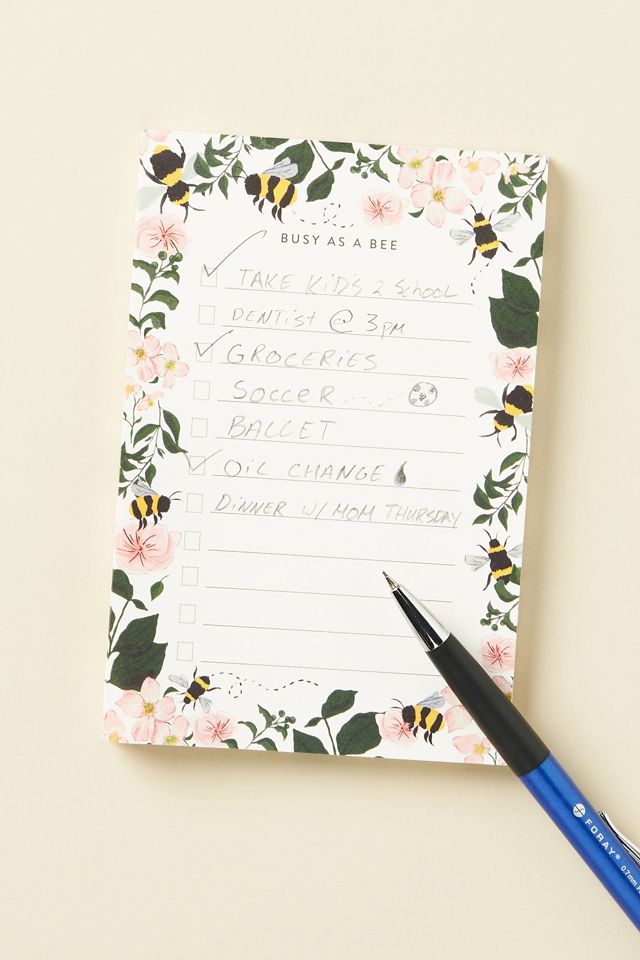 BUSY AS A BEE
TAKE KiD'S 2 School
DENTiST @ 3pm
GROCERIES
SOCCER
BALLET
OiL CHANGE
DINNER W/ MOM THURSDAY
FORAY®
0.7mm